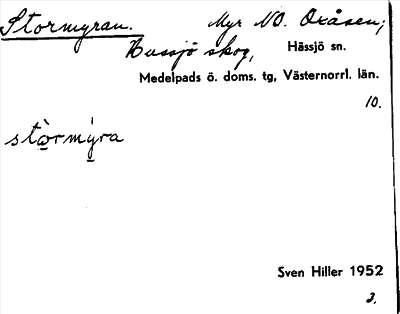 Stormyran. Myr NO. Oxåsen,
Hussjö skog, Hässjö sn.
Medelpads ö. doms. tg, Västernorrl. län.
10.
stòrmýra
Sven Hiller 1952
3.